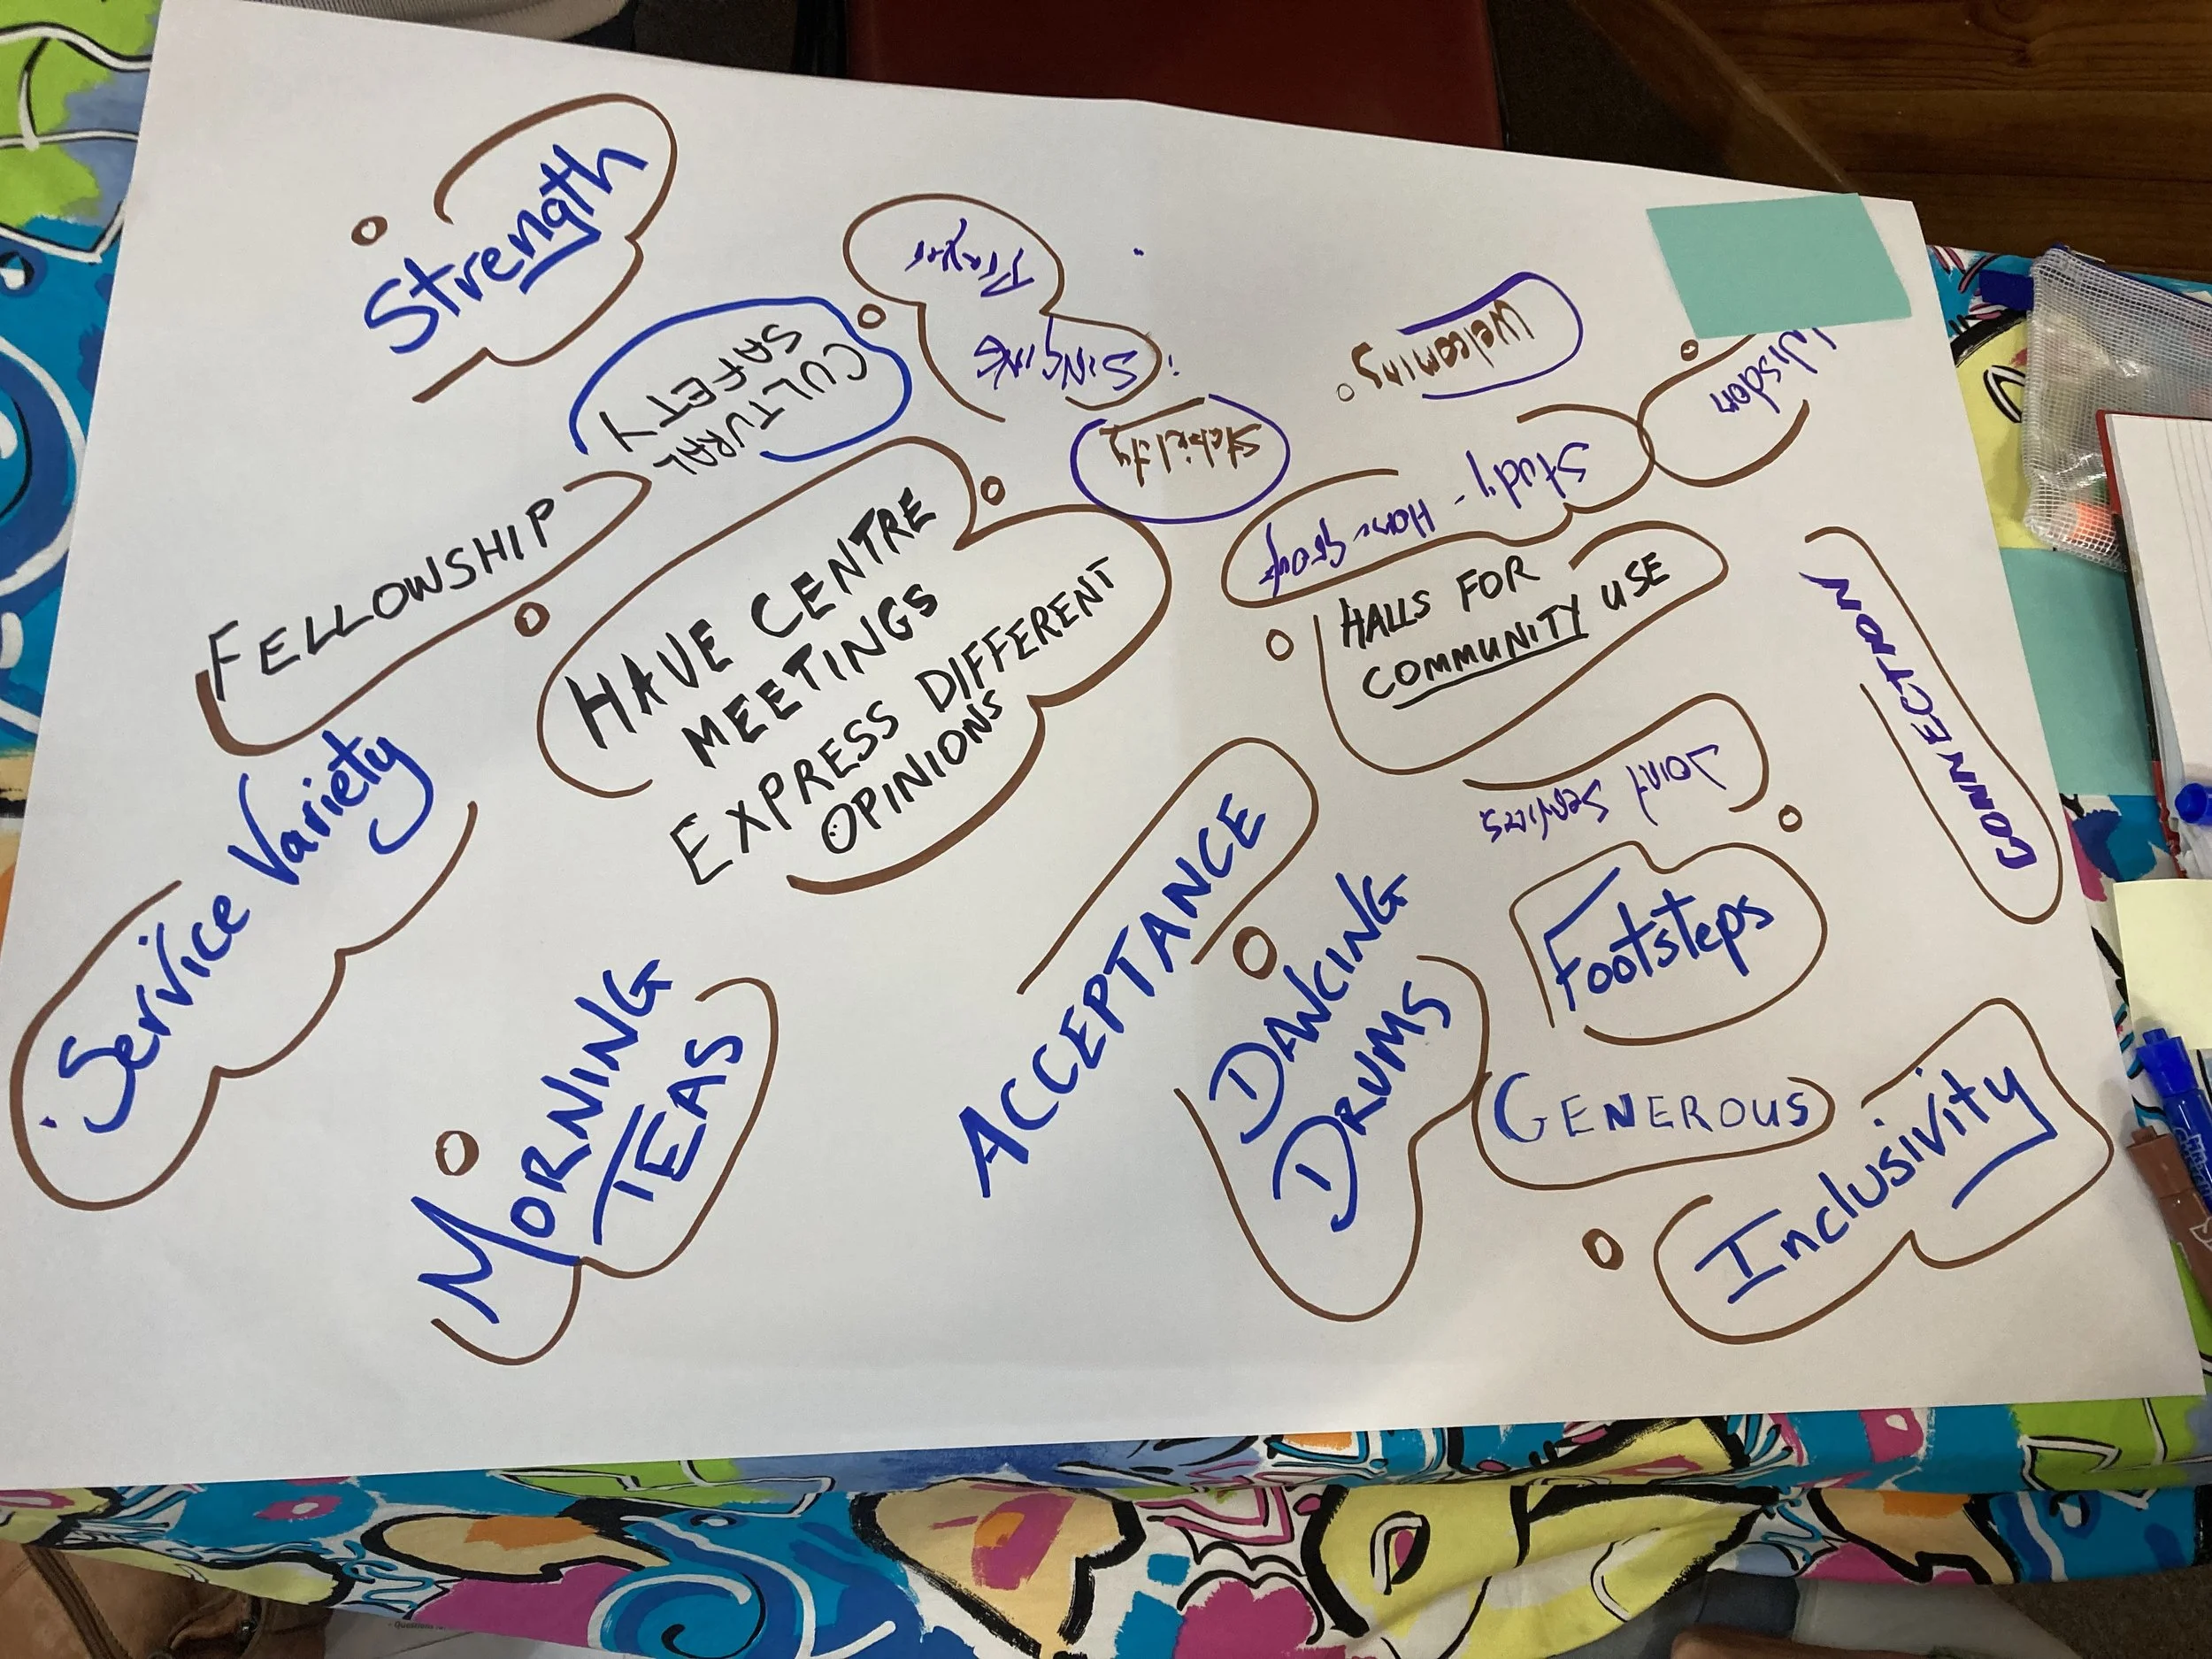 Strength
Prayer
SINGING
CULTURAL
SAFETY
Welcoming
Wisdom
Stability
Study - Home group
FELLOWSHIP
HAVE CENTRE
MEETINGS
EXPRESS DIFFERENT
OPINIONS
HALLS FOR
COMMUNITY USE
CONNECTION
Joint Services
Service Variety
ACCEPTANCE
Footsteps
DANCING
DRUMS
MORNING
TEAS
GENEROUS
Inclusivity